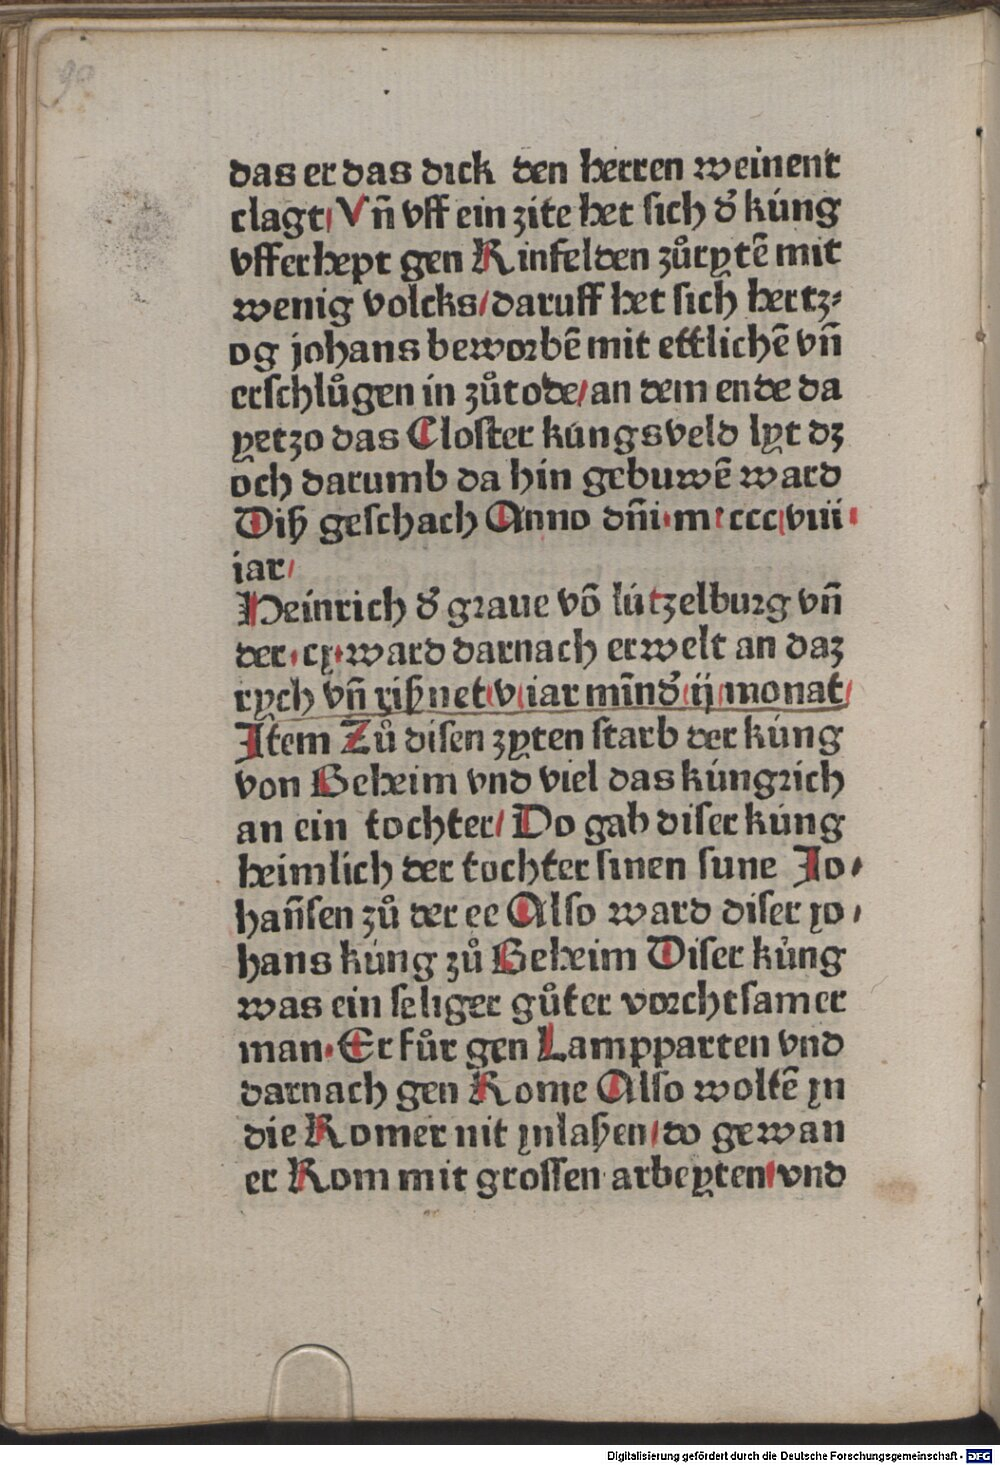 90
das er das dick den herren weinent
clagt/ Vn̄ vff ein zite het sich d' kúng
vfferhept gen Rinfelden zůrytē mit
wenig volcks/ daruff het sich hertz⸗
og johans beworbē mit ettlichē vn̄
erschlůgen in zůtode/ an dem ende da
yetzo das Closter kúngsveld lyt dz
och darumb da hin gebuwē ward
Diß geschach Anno dn̄i·m·ccc·viii·
iar/
Heinrich d' graue vō lútzelburg vn̄
der·cx·ward darnach erwelt an daz
rych vn̄ rißnet·v·iar mīnd'·ij·monat/
Item Zů disen zyten starb der kúng
von Beheim vnd viel das kúngrich
an ein tochter/ Do gab diser kúng
heimlich der tochter sinen sune Jo⸗
han̄sen zů der ee Also ward diser jo⸗
hans kúng zů Beheim Diser kúng
was ein seliger gůter vorchtsamer
man·Er fůr gen Lampparten vnd
darnach gen Rome Also woltē jn
die Romer nit jnlaßen/ do gewan
er Rom mit grossen arbeyten/ vnd
Digitalisierung gefördert durch die Deutsche Forschungsgemeinschaft - DFG